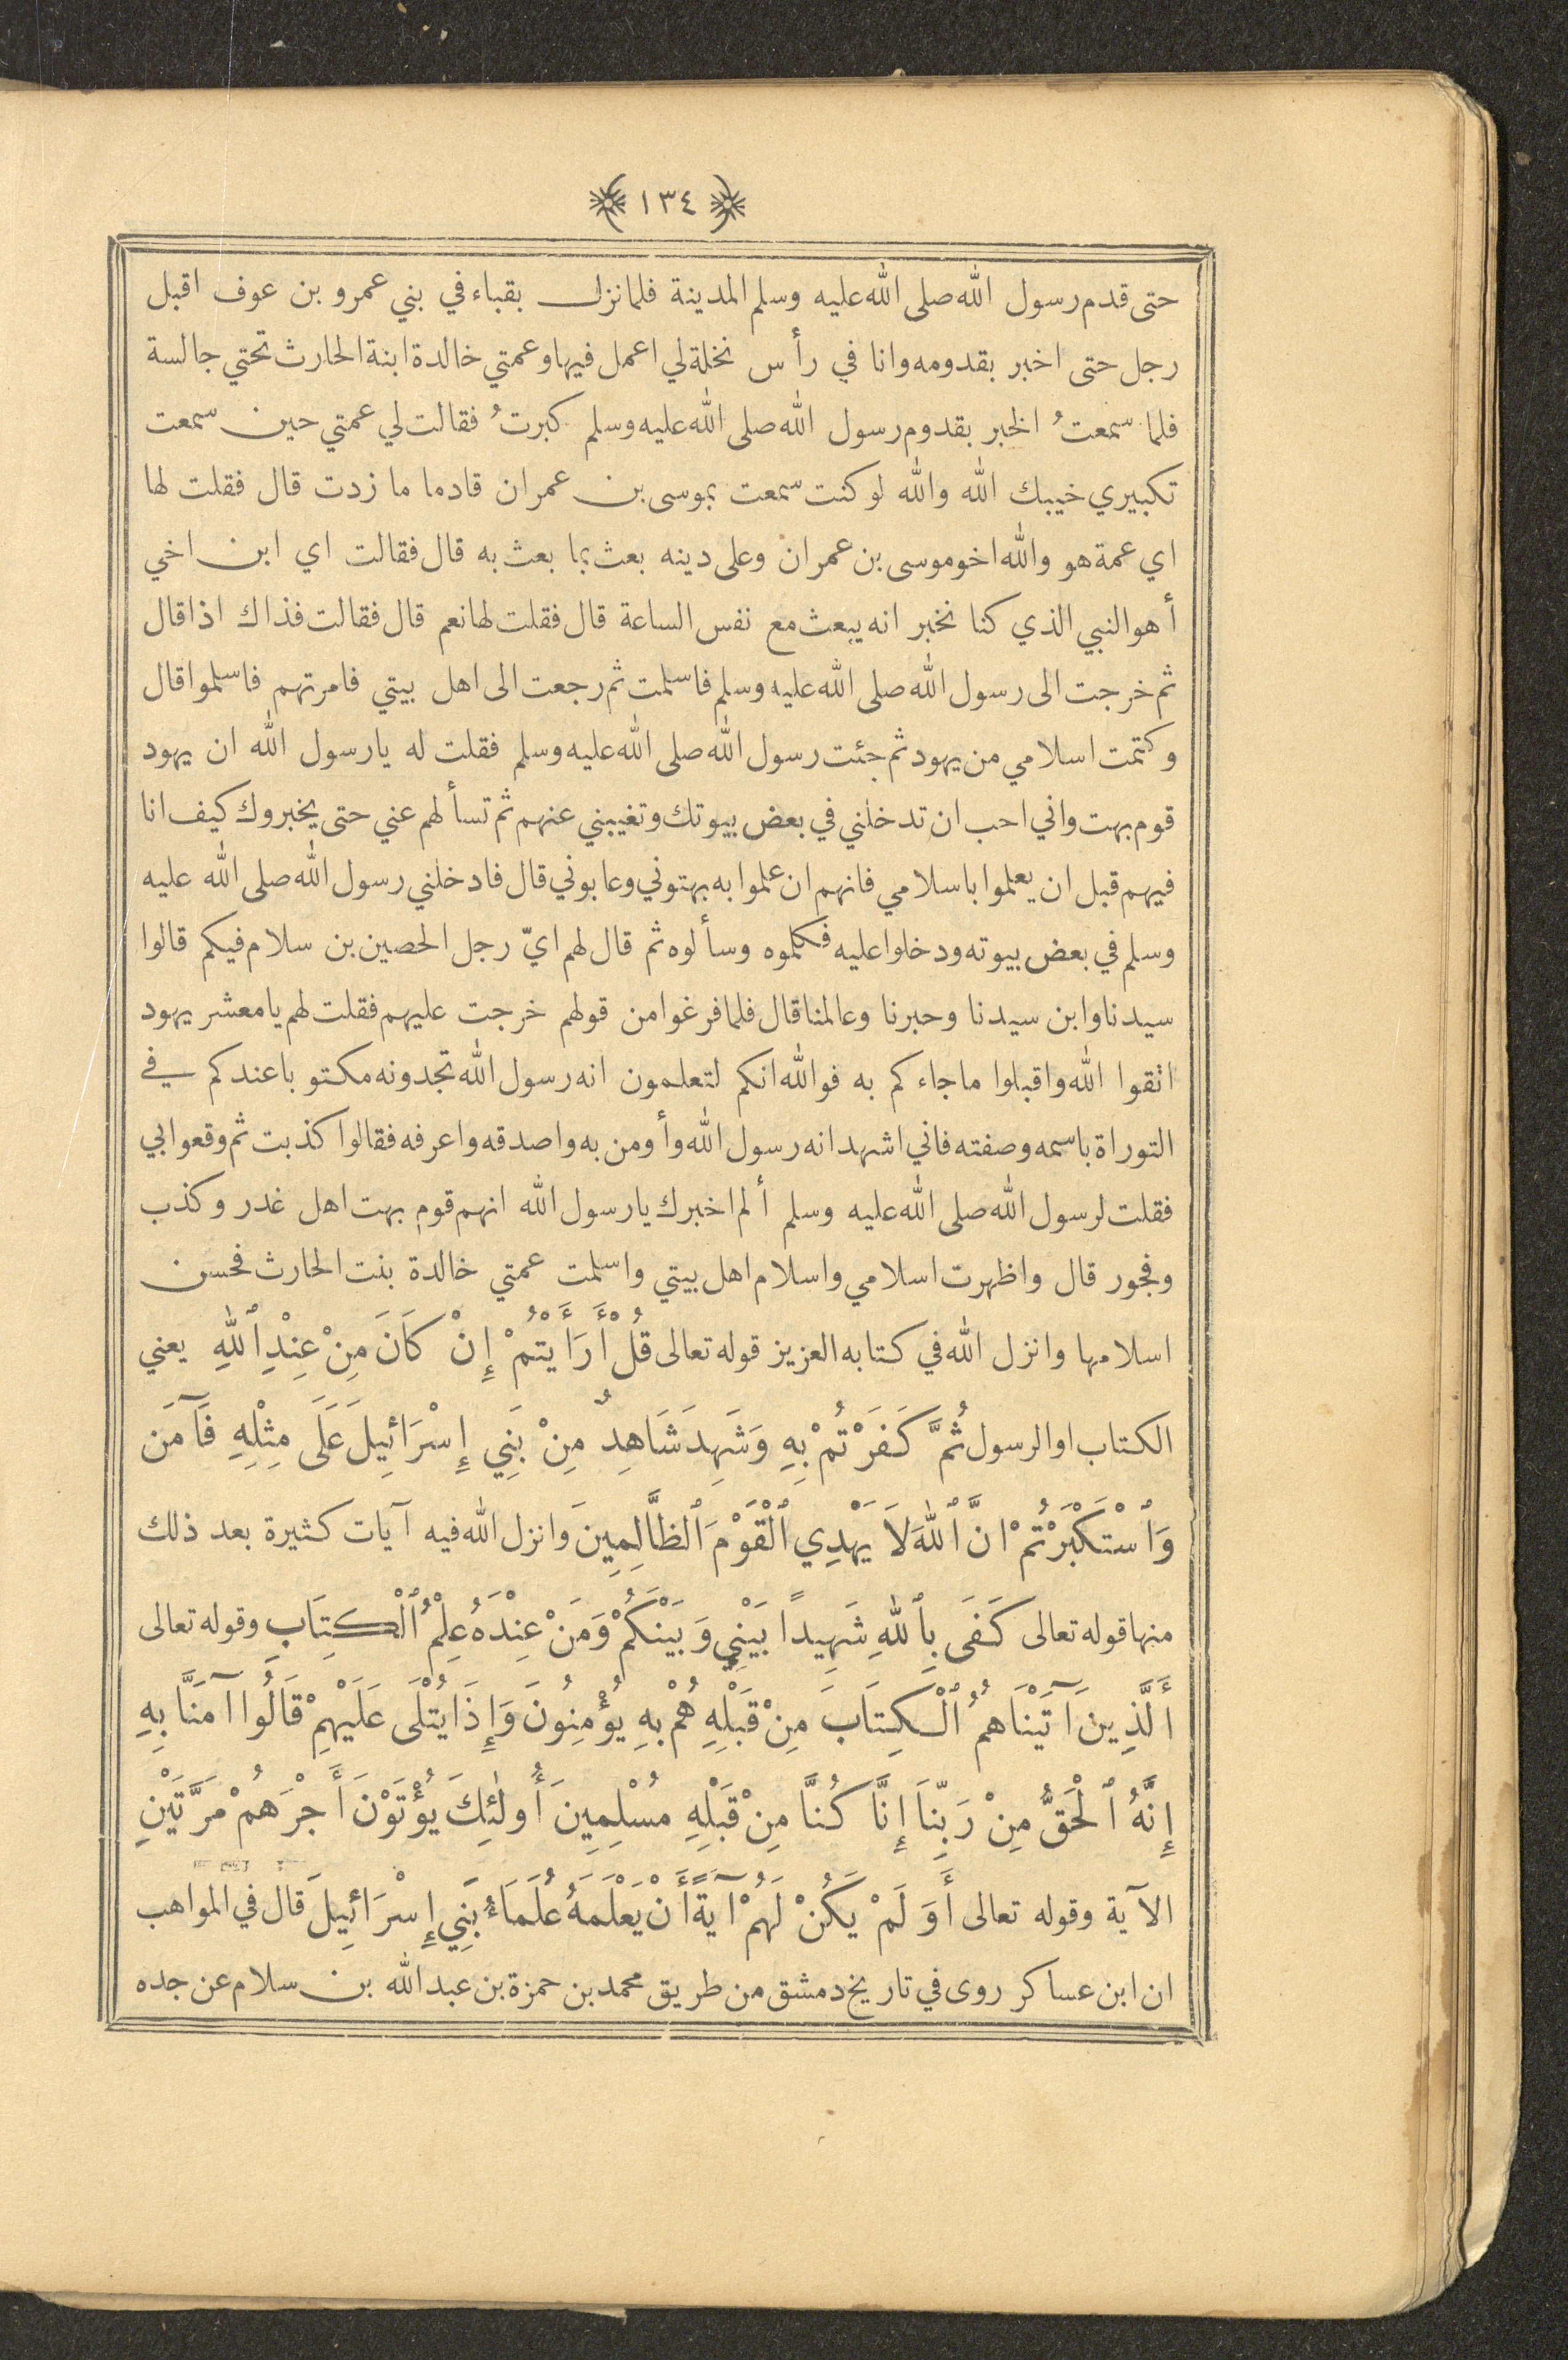 ﴿ ١٣٤ ﴾
حتى قدم رسول الله صلى الله عليه وسلم المدينة فلما نزل بقباء في بني عمرو بن عوف اقبل
رجل حتى اخبر بقدومه وانا في رأس نخلة لي اعمل فيها وعمتي خالدة ابنة الحارث تحتي جالسة
فلما سمعتُ الخبر بقدوم رسول الله صلى الله عليه وسلم كبرتُ فقالت لي عمتي حين سمعت
تكبيري خيبك الله والله لو كنت سمعت بموسى بن عمران قادما ما زدت قال فقلت لها
اي عمة هو والله اخو موسى بن عمران وعلى دينه بعث بما بعث به قال فقالت اي ابن اخي
أهو النبي الذي كنا نخبر انه يبعث مع نفس الساعة قال فقلت لها نعم قال فقالت فذاك اذا قال
ثم خرجت الى رسول الله صلى الله عليه وسلم فاسلمت ثم رجعت الى اهل بيتي فامرتهم فاسلموا قال
وكتمت اسلامي من يهود ثم جئت رسول الله صلى الله عليه وسلم فقلت له يا رسول الله ان يهود
قوم بهت واني احب ان تدخلني في بعض بيوتك وتغيبني عنهم ثم تسألهم عني حتى يخبروك كيف انا
فيهم قبل ان يعلموا باسلامي فانهم ان علموا به بهتوني وعابوني قال فادخلني رسول الله صلى الله عليه
وسلم في بعض بيوته ودخلوا عليه فكلموه وسألوه ثم قال لهم ايّ رجل الحصين بن سلام فيكم قالوا
سيدنا وابن سيدنا وحبرنا وعالمنا قال فلما فرغوا من قولهم خرجت عليهم فقلت لهم يا معشر يهود
اتقوا الله واقبلوا ما جاءكم به فوالله انكم لتعلمون انه رسول الله تجدونه مكتوبا عندكم في
التوراة باسمه وصفته فاني اشهد انه رسول الله وأومن به واصدقه واعرفه فقالوا كذبت ثم وقعوا بي
فقلت لرسول الله صلى الله عليه وسلم ألم اخبرك يا رسول الله انهم قوم بهت اهل غدر وكذب
وفجور قال واظهرت اسلامي واسلام اهل بيتي واسلمت عمتي خالدة بنت الحارث فحسن
اسلامها وانزل الله في كتابه العزيز قوله تعالى قُلْ أَرَأَيْتُمْ إِنْ كَانَ مِنْ عِنْدِ ٱللهِ يعني
الكتاب او الرسول ثُمَّ كَفَرْتُمْ بِهِ وَشَهِدَ شَاهِدٌ مِنْ بَنِي إِسْرَائِيلَ عَلَى مِثْلِهِ فَآمَنَ
وَٱسْتَكْبَرْتُمْ انَّ ٱللهَ لاَ يَهْدِي ٱلْقَوْمَ ٱلظَّالِمِينَ وانزل الله فيه آيات كثيرة بعد ذلك
منها قوله تعالى كَفَى بِٱللهِ شَهِيداً بَيْنِي وَبَيْنَكُمْ وَمَنْ عِنْدَهُ عِلْمُ ٱلْكِتَابِ وقوله تعالى
أَلَّذِينَ آتَيْنَاهُمُ ٱلْكِتَابَ مِنْ قَبْلِهِ هُمْ بِهِ يُؤْمِنُونَ وَإِذَا يُتْلَى عَلَيْهِمْ قَالُوا آمَنَّا بِهِ
إِنَّهُ ٱلْحَقُّ مِنْ رَبِّنَا إِنَّا كُنَّا مِنْ قَبْلِهِ مُسْلِمِينَ أُولٰئِكَ يُؤْتَوْنَ أَجْرَهُمْ مَرَّتَيْنِ
الآية وقوله تعالى أَوَ لَمْ يَكُنْ لَهُمْ آيَةً أَنْ يَعْلَمَهُ عُلَمَاءُ بَنِي إِسْرَائِيلَ قال في المواهب
ان ابن عساكر روى في تاريخ دمشق من طريق محمد بن حمزة بن عبد الله بن سلام عن جده